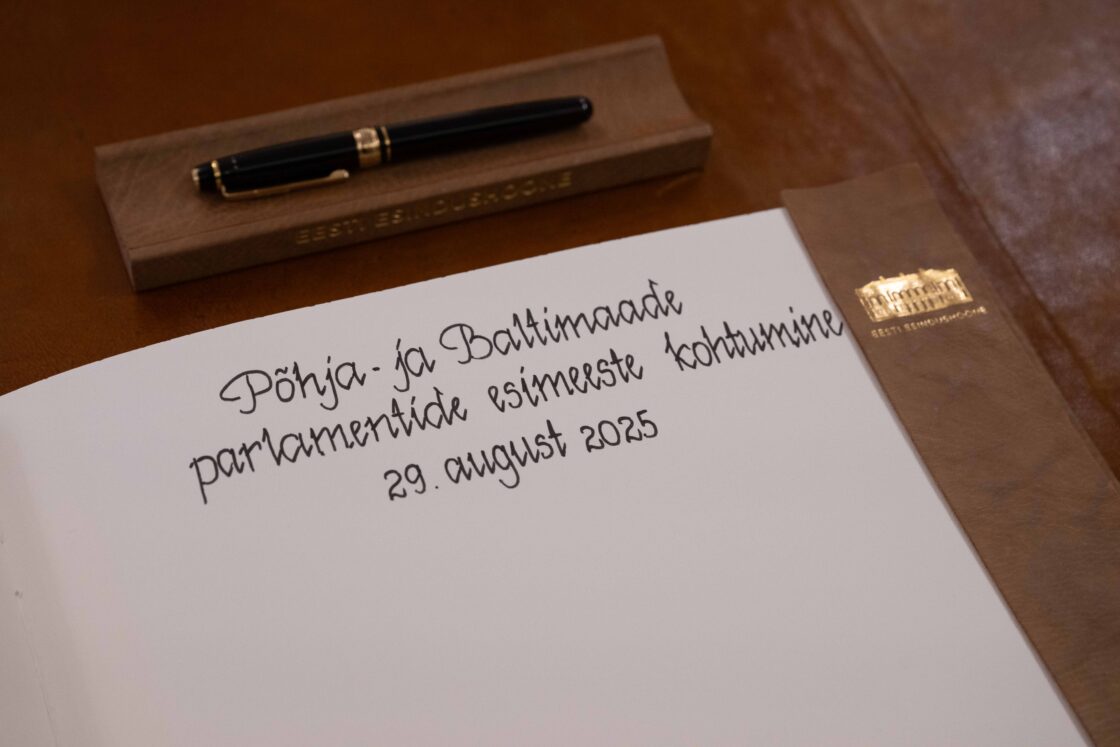 EESTI ESINDUSHOONE
Põhja- ja Baltimaade
parlamentide esimeeste kohtumine
29. august 2025
EESTI ESINDUSHOONE